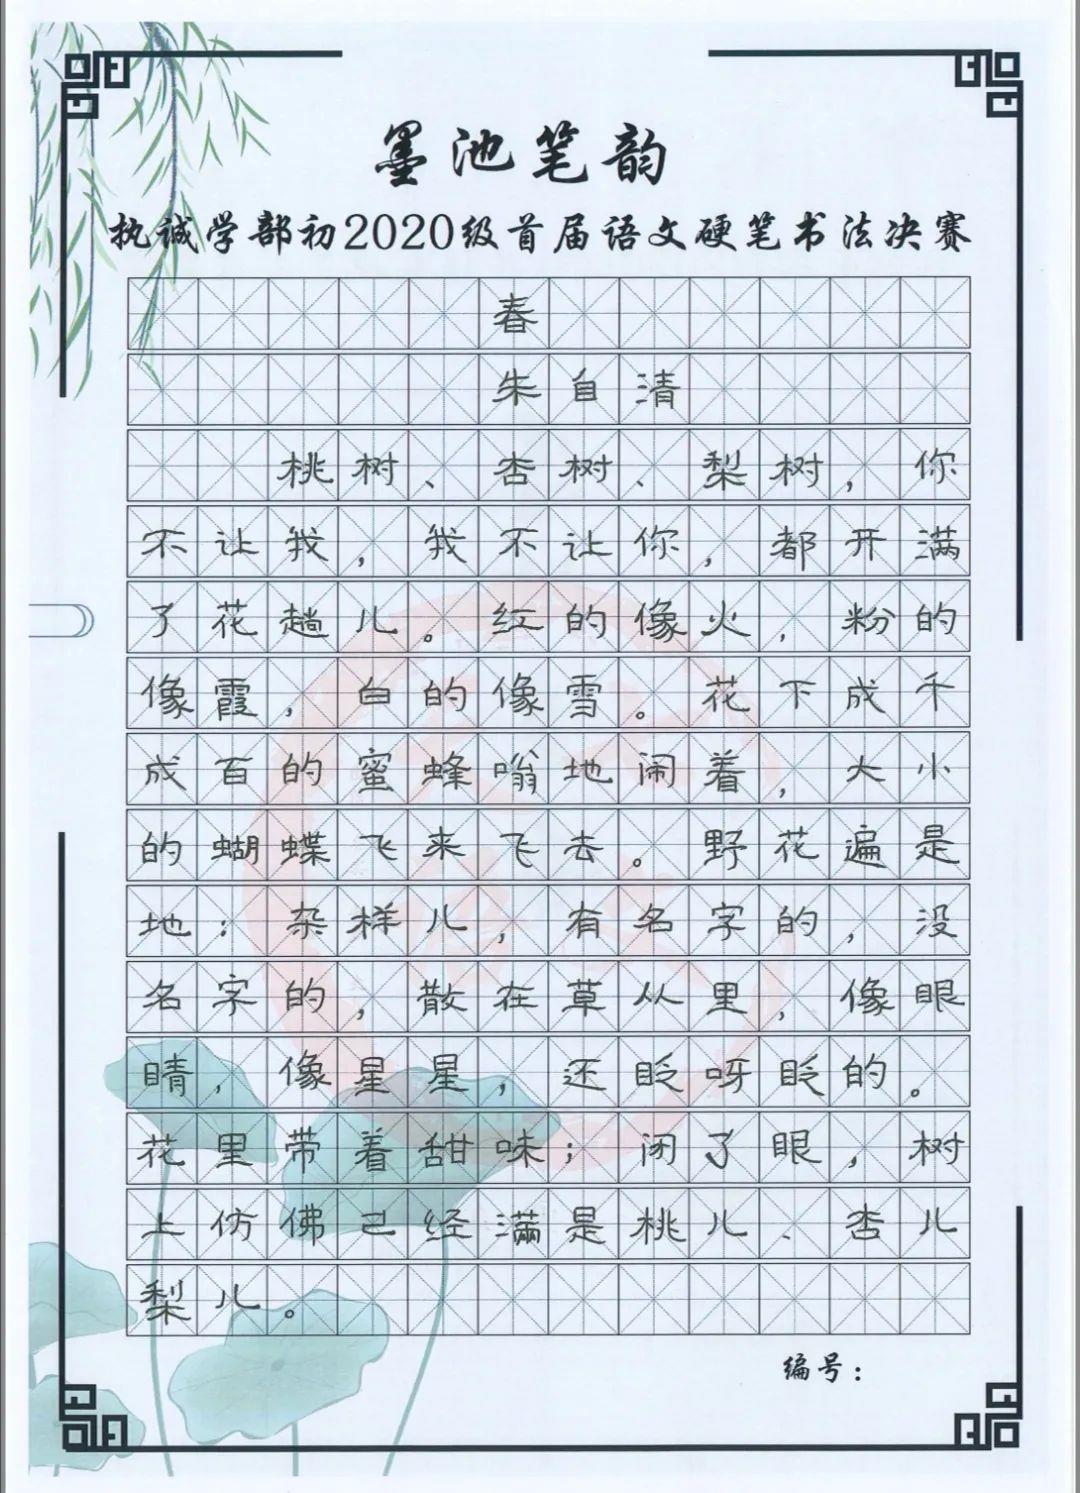 墨池笔韵
执诚学部初2020级首届语文硬笔书法决赛
春
朱自清
桃树、杏树、梨树，你
不让我，我不让你，都开满
了花趟儿。红的像火，粉的
像霞，白的像雪。花下成千
成百的蜜蜂嗡地闹着，大小
的蝴蝶飞来飞去。野花遍是
地：杂样儿，有名字的，没
名字的，散在草从里，像眼
睛，像星星，还眨呀眨的。
花里带着甜味；闭了眼，树
上仿佛已经满是桃儿、杏儿
梨儿。
编号：